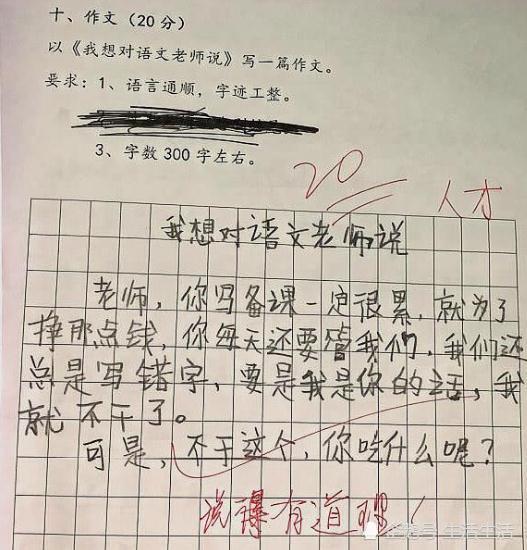 十、作文（20分）
以《我想对语文老师说》写一篇作文。
要求：1、语言通顺，字迹工整。
3、字数300字左右。
20
人才
我想对语文老师说
老师，你写备课一定很累，就为了
挣那点钱，你每天还要管我们，我们还
总是写错字，要是我是你的话，我
就不干了。
可是，不干这个，你吃什么呢？
说得有道理！
企鹅号 生活生活